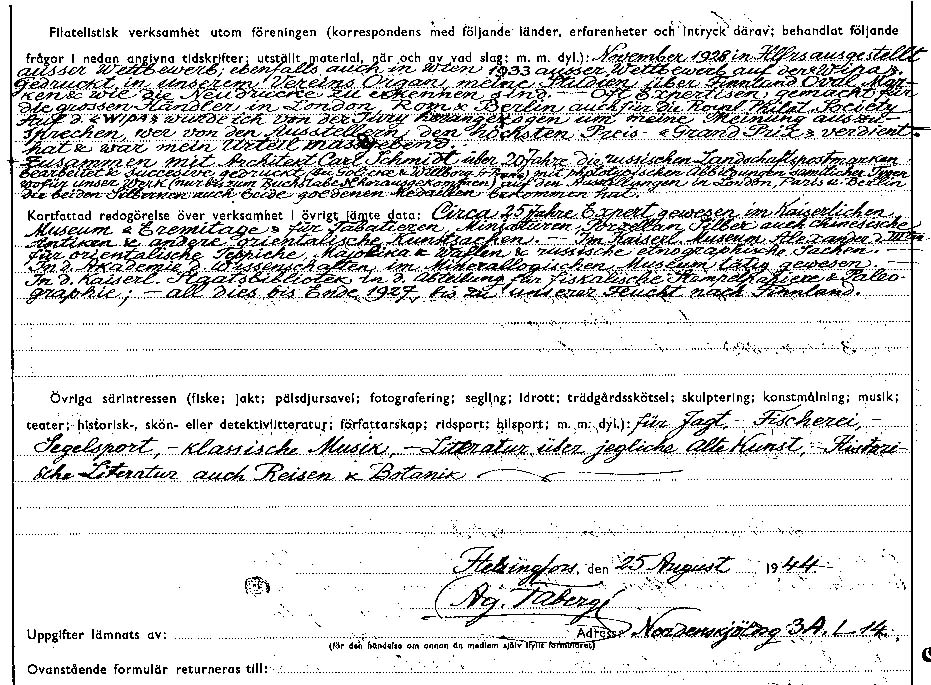 Filatelistisk verksamhet utom föreningen (korrespondens med följande länder, erfarenheter och intryck därav; behandlat följande
frågor i nedan angivna tidskrifter; utställt material, när och av vad slag; m. m. dyl.): November 1928 in Hfgrs ausgestellt
ausser Wettbewerb; ebenfalls auch in Wien 1933 ausser Wettbewerb auf der "Wipa".
Gedruckt in unserem Vereins Organ meine Studien über Finnlands Oval Mar-
ken & wie die Neudrucke zu erkennen sind. — Oft Expertisen gemacht für
die grossen Händler in London Rom & Berlin auch für die Royal Philat. Society
Auf d. «Wipa» wurde ich von der Jury herangezogen um meine Meinung auszu-
sprechen, wer von den Ausstellern den höchsten Preis - «Grand Prix» verdient
hat & war mein Urteil massgebend.
Zusammen mit Architekt Carl Schmidt über 20 Jahre die russischen Landschaftspostmarken
bearbeitet & succesive gedruckt (bei Golicke & Willborg) mit photografischen Abbildungen sämtlicher Typen
wofür unser Werk (nur bis zum Buchstabe herausgekommen) auf den Ausstellungen in London, Paris u. Berlin
die beiden Silbernen auch beide goldenen Medaillen bekommen hat.
Kortfattad redogörelse över verksamhet i övrigt jämte data: Circa 25 Jahre Expert gewesen im Kaiserlichen
Museum «Eremitage» für Tabatieren, Miniaturen, Porzellan Silber auch Chinesische
Antiken & andere orientalische Kunstsachen. — Im Kaiserl. Museum Alexander d III ten
für orientalische Teppiche, Majolika & Waffen & russische etnographische Sachen.
In d. Akademie d. Wissenschaften im Mineralogischen Museum tätig gewesen.
In d. Kaiserl. Staatsbibliotek in d. Abteilung für fiskalische Stempelpapiere & Paleo-
graphie; — all dies bis Ende 1927, bis zu unserer Flucht nach Finnland.
Övriga särintressen (fiske; jakt; pälsdjursavel; fotografering; segling; idrott; trädgårdsskötsel; skulptering; konstmålning; musik;
teater; historisk-, skön- eller detektivlitteratur; författarskap; ridsport; bilsport; m. m. dyl.): für Jagt, - Fischerei, -
Segelsport, - klassische Musik, - Litteratur über jegliche alte Kunst, - Histori-
sche Literatur auch Reisen & Botanik
Helsingfors, den 25 August 1944
Ag. Fabergé
Uppgifter lämnats av: Adress: Nordenskjöldg 3 A. L - 14.
(för den händelse om annan än medlem själv ifyllt formuläret)
Ovanstående formulär returneras till: